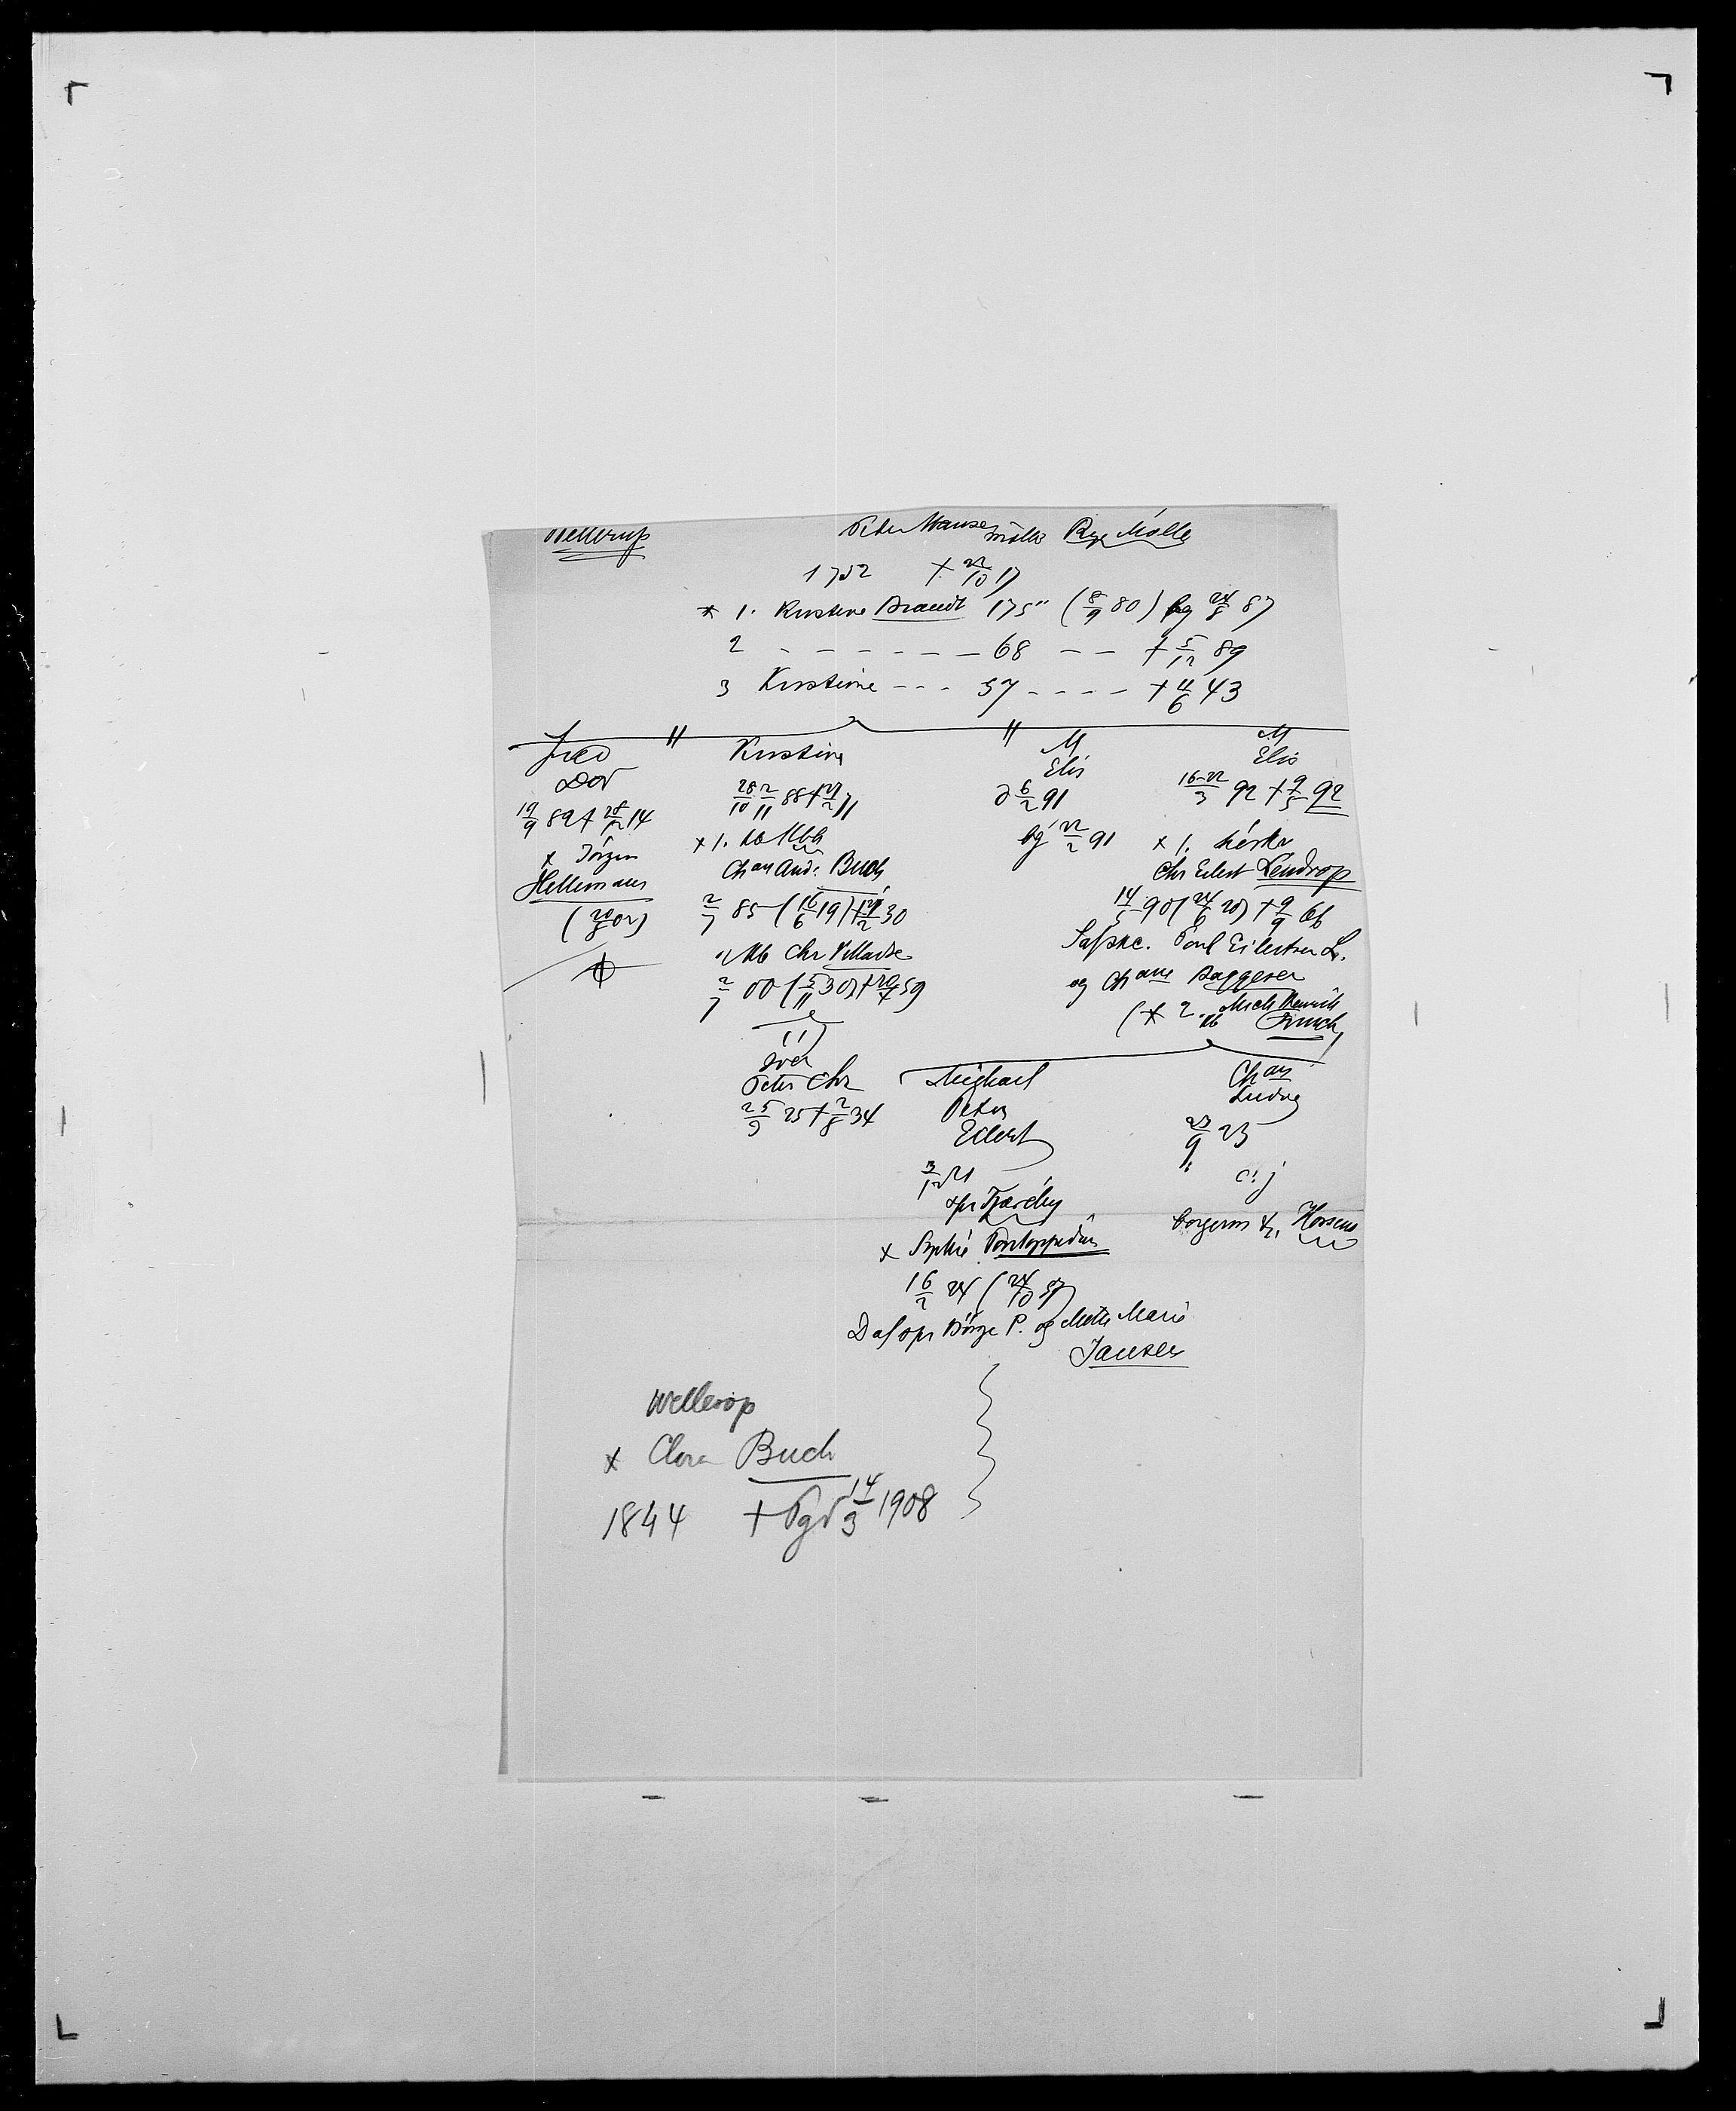 Wellerup
Peter Hansen møller Rye Mølle
1752 † 22/10 17
* 1. Kirstine Brandt 175" (8/9 80) bg 24/8 87
2 - - - - - - - 68 - - † 5/12 89
3 Kirstine - - - 57 - - - - † 4/6 43
Fred
Dor
19/9 89 † 28/12 14
x Jörgen
Hellemann
(20/8 02)
Kirstine
28/10 2/11 88 † 27/2 71
x 1. Kbh
Chan And. Buch
2/7 85 (16/6 19) † 19/2 30
2/7 00 (5/11 30) † 20/7 59
Iver
Peter Chr
25/3 25 † 2/8 34
M
Elis
d 6/2 91
bg 22/2 91
M
Elis
16-22/3 92 † 9/5 92
x 1.
Chr Eilert Lendrop
14/5 90 (24/6 20) † 9/9 66
Poul Eilertsen L.
og Chane Baggesen
(* 2. Mich Henrik
Michael
Peter
Eilert
3/12 21
x Sophie Pontoppidan
16/2 24 (24/10 57)
D af Börge P. og Mette Marie
Jansen
Chan
Ludvig
23/9 23
" c: j
borgerm Horsens
Wellerop
x Clara Buch
1844 † 14/3 1908